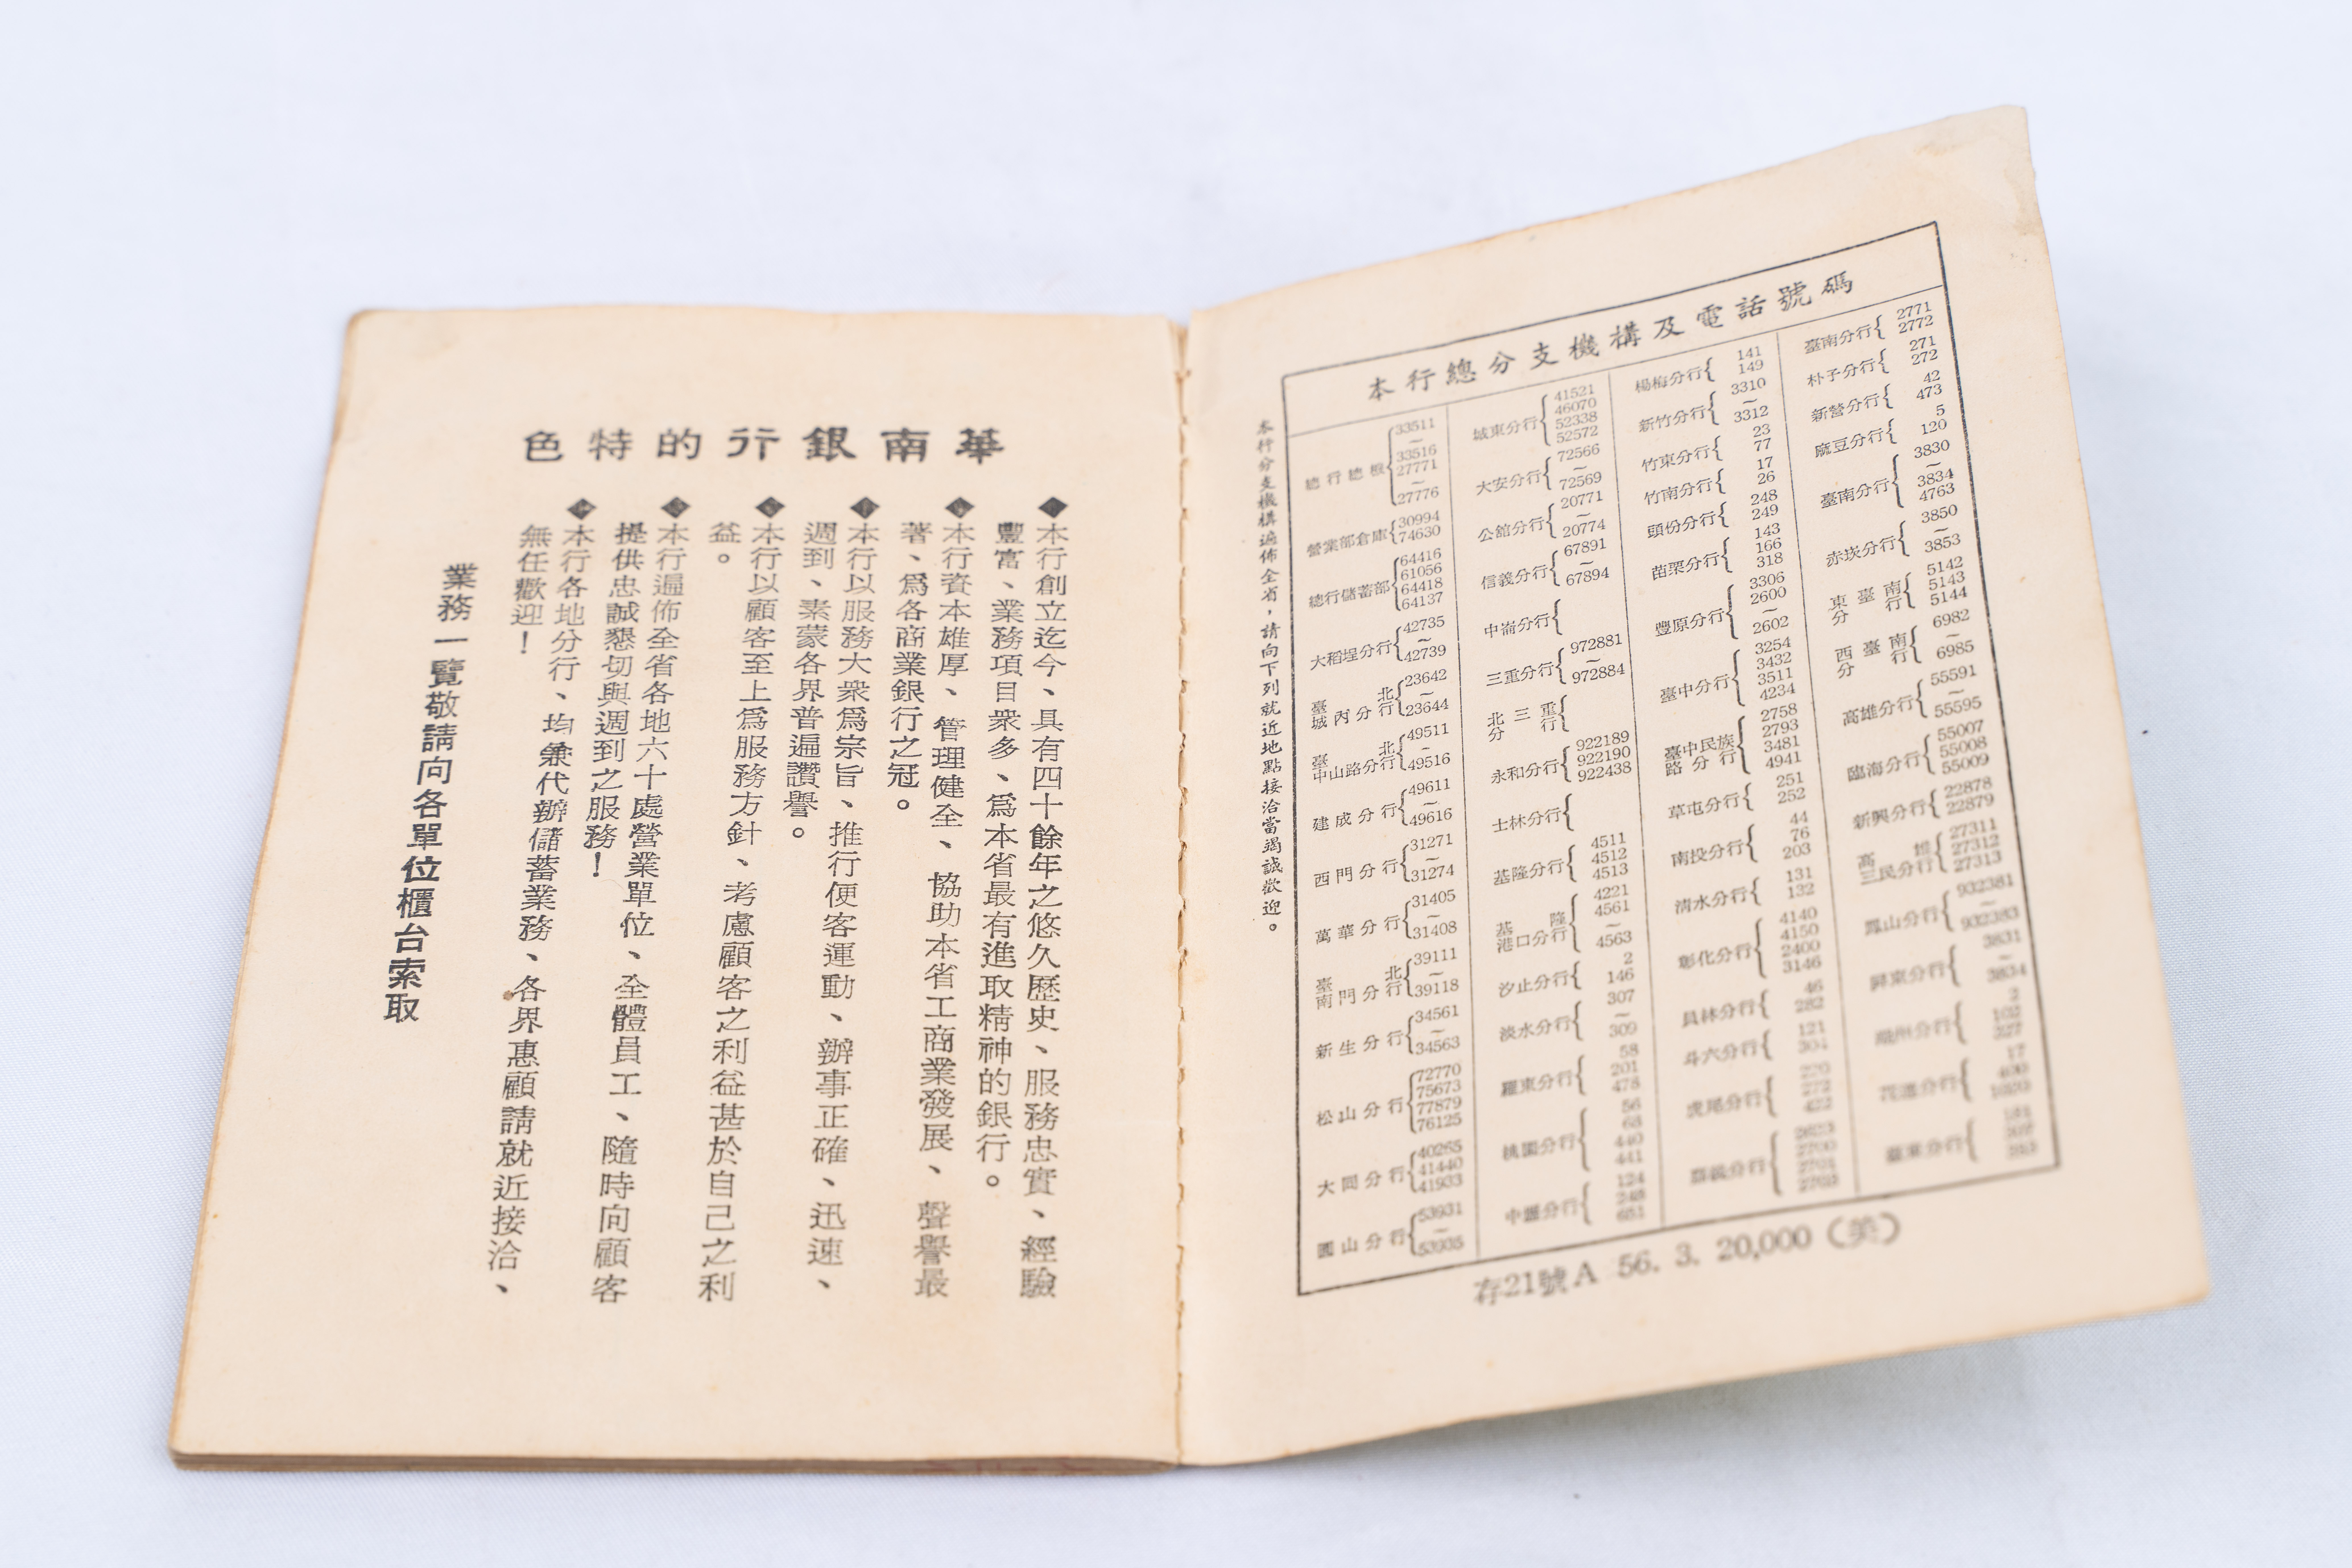 華南銀行的特色
◆本行創立迄今、具有四十餘年之悠久歷史、服務忠實、經驗
豐富、業務項目衆多、爲本省最有進取精神的銀行。
◆本行資本雄厚、管理健全、協助本省工商業發展、聲譽最
著、爲各商業銀行之冠。
◆本行以服務大衆爲宗旨、推行便客運動、辦事正確、迅速、
週到、素蒙各界普遍讚譽。
◆本行以顧客至上爲服務方針、考慮顧客之利益甚於自己之利
益。
◆本行遍佈全省各地六十處營業單位、全體員工、隨時向顧客
提供忠誠懇切與週到之服務！
◆本行各地分行、均兼代辦儲蓄業務、各界惠顧請就近接洽、
無任歡迎！
業務一覽敬請向各單位櫃台索取
本行分支機構遍佈全省，請向下列就近地點接洽當竭誠歡迎。
本行總分支機構及電話號碼
總行總機 33511～33516 27771～27776
營業部倉庫 30994 74630
總行儲蓄部 64416 61056 64418 64137
大稻埕分行 42735～42739
臺北城內分行 23642～23644
臺北中山路分行 49511～49516
建成分行 49611～49616
西門分行 31271～31274
萬華分行 31405～31408
臺北南門分行 39111～39118
新生分行 34561～34563
松山分行 72770 75673 77879 76125
大同分行 40265 41440 41933
圓山分行 53931～53935
城東分行 41521 46070 52338 52572
大安分行 72566～72569
公館分行 20771～20774
信義分行 67891～67894
中崙分行
三重分行 972881～972884
北三重分行
永和分行 922189 922190 922438
士林分行
基隆分行 4511 4512 4513
基隆港口分行 4221 4561～4563
汐止分行 2 146
淡水分行 307～309
羅東分行 58 201 478
桃園分行 56 68 440 441
中壢分行 124 248 651
楊梅分行 141 149
新竹分行 3310～3312
竹東分行 23 77
竹南分行 17 26
頭份分行 248 249
苗栗分行 143 166 318
豐原分行 3306 2600～2602
臺中分行 3254 3432 3511 4234
臺中民族路分行 2758 2793 3481 4941
草屯分行 251 252
南投分行 44 76 203
清水分行 131 132
彰化分行 4140 4150 2400 3146
員林分行 46 282
斗六分行 121 304
虎尾分行 272 422
嘉義分行 2700
臺南分行 2771 2772
朴子分行 271 272
新營分行 42 473
麻豆分行 5 120
臺南分行 3830～3834 4763
赤崁分行 3850～3853
東臺南分行 5142 5143 5144
西臺南分行 6982～6985
高雄分行 55591～55595
臨海分行 55007 55008 55009
新興分行 22878 22879
高雄三民分行 27311 27312 27313
鳳山分行 932381～932383
屏東分行 3831～3834
潮州分行 2 102 327
花蓮分行 17 400
臺東分行
存21號A 56. 3. 20,000（英）